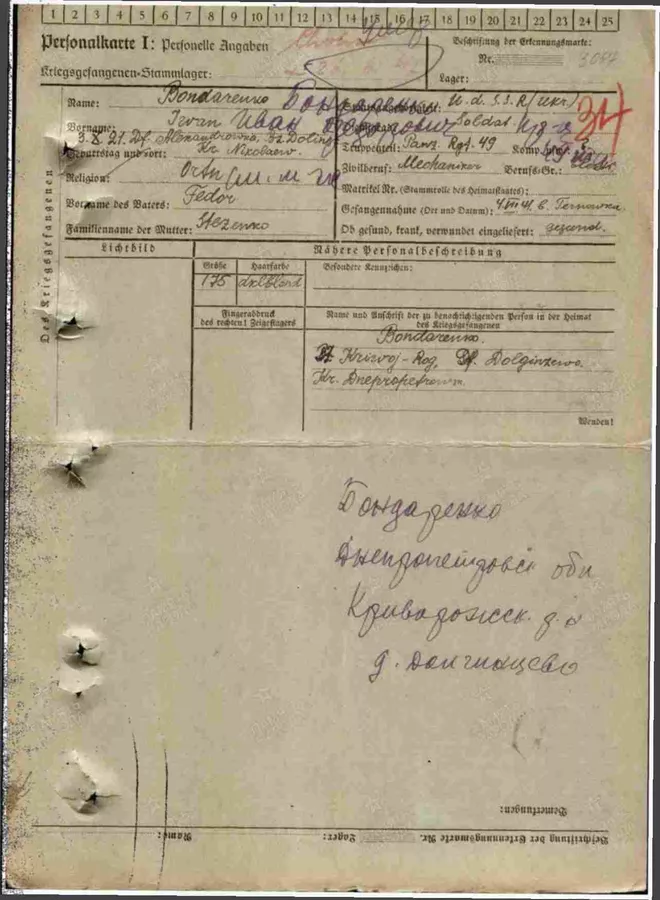 1 2 3 4 5 6 7 8 9 10 11 12 13 14 15 16 17 18 19 20 21 22 23 24 25
Personalkarte I: Personelle Angaben
Beschriftung der Erkennungsmarke:
Nr.
Kriegsgefangenen-Stammlager:
Lager:
Des Kriegsgefangenen
Name: Bondarenko Бондаренко
Staatsangehörigkeit: U.d.S.S.R. (Ukr.)
Vorname: Iwan Иван
Dienstgrad: Soldat
Geburtstag und -ort: 3.8.21. Df. Alexandrowka, Bz. Dolinsk
Kr. Nikolaew.
Truppenteil: Panz. Rgt. 49 Komp. usw.:
Religion: Orth
Zivilberuf: Mechaniker Berufs-Gr.:
Matrikel Nr. (Stammrolle des Heimatstaates):
Vorname des Vaters: Fedor
Gefangennahme (Ort und Datum): 4.VIII.41. b. Ternowka
Familienname der Mutter: Stezenko
Ob gesund, krank, verwundet eingeliefert: gesund.
Lichtbild
Nähere Personalbeschreibung
Größe Haarfarbe
Besondere Kennzeichen:
175 dklblond
Fingerabdruck
des rechten! Zeigefingers
Name und Anschrift der zu benachrichtigenden Person in der Heimat
des Kriegsgefangenen
Bondarenko.
Bz. Kriwoj-Rog, Df. Dolginzewo.
Kr. Dnepropetrowsk
Wenden!
Бондаренко
Днепропетровск обл
Криворожск. р-н
д. Долгинцево
Bemerkungen:
Name: Lager: Beschriftung der Erkennungsmarke Nr.